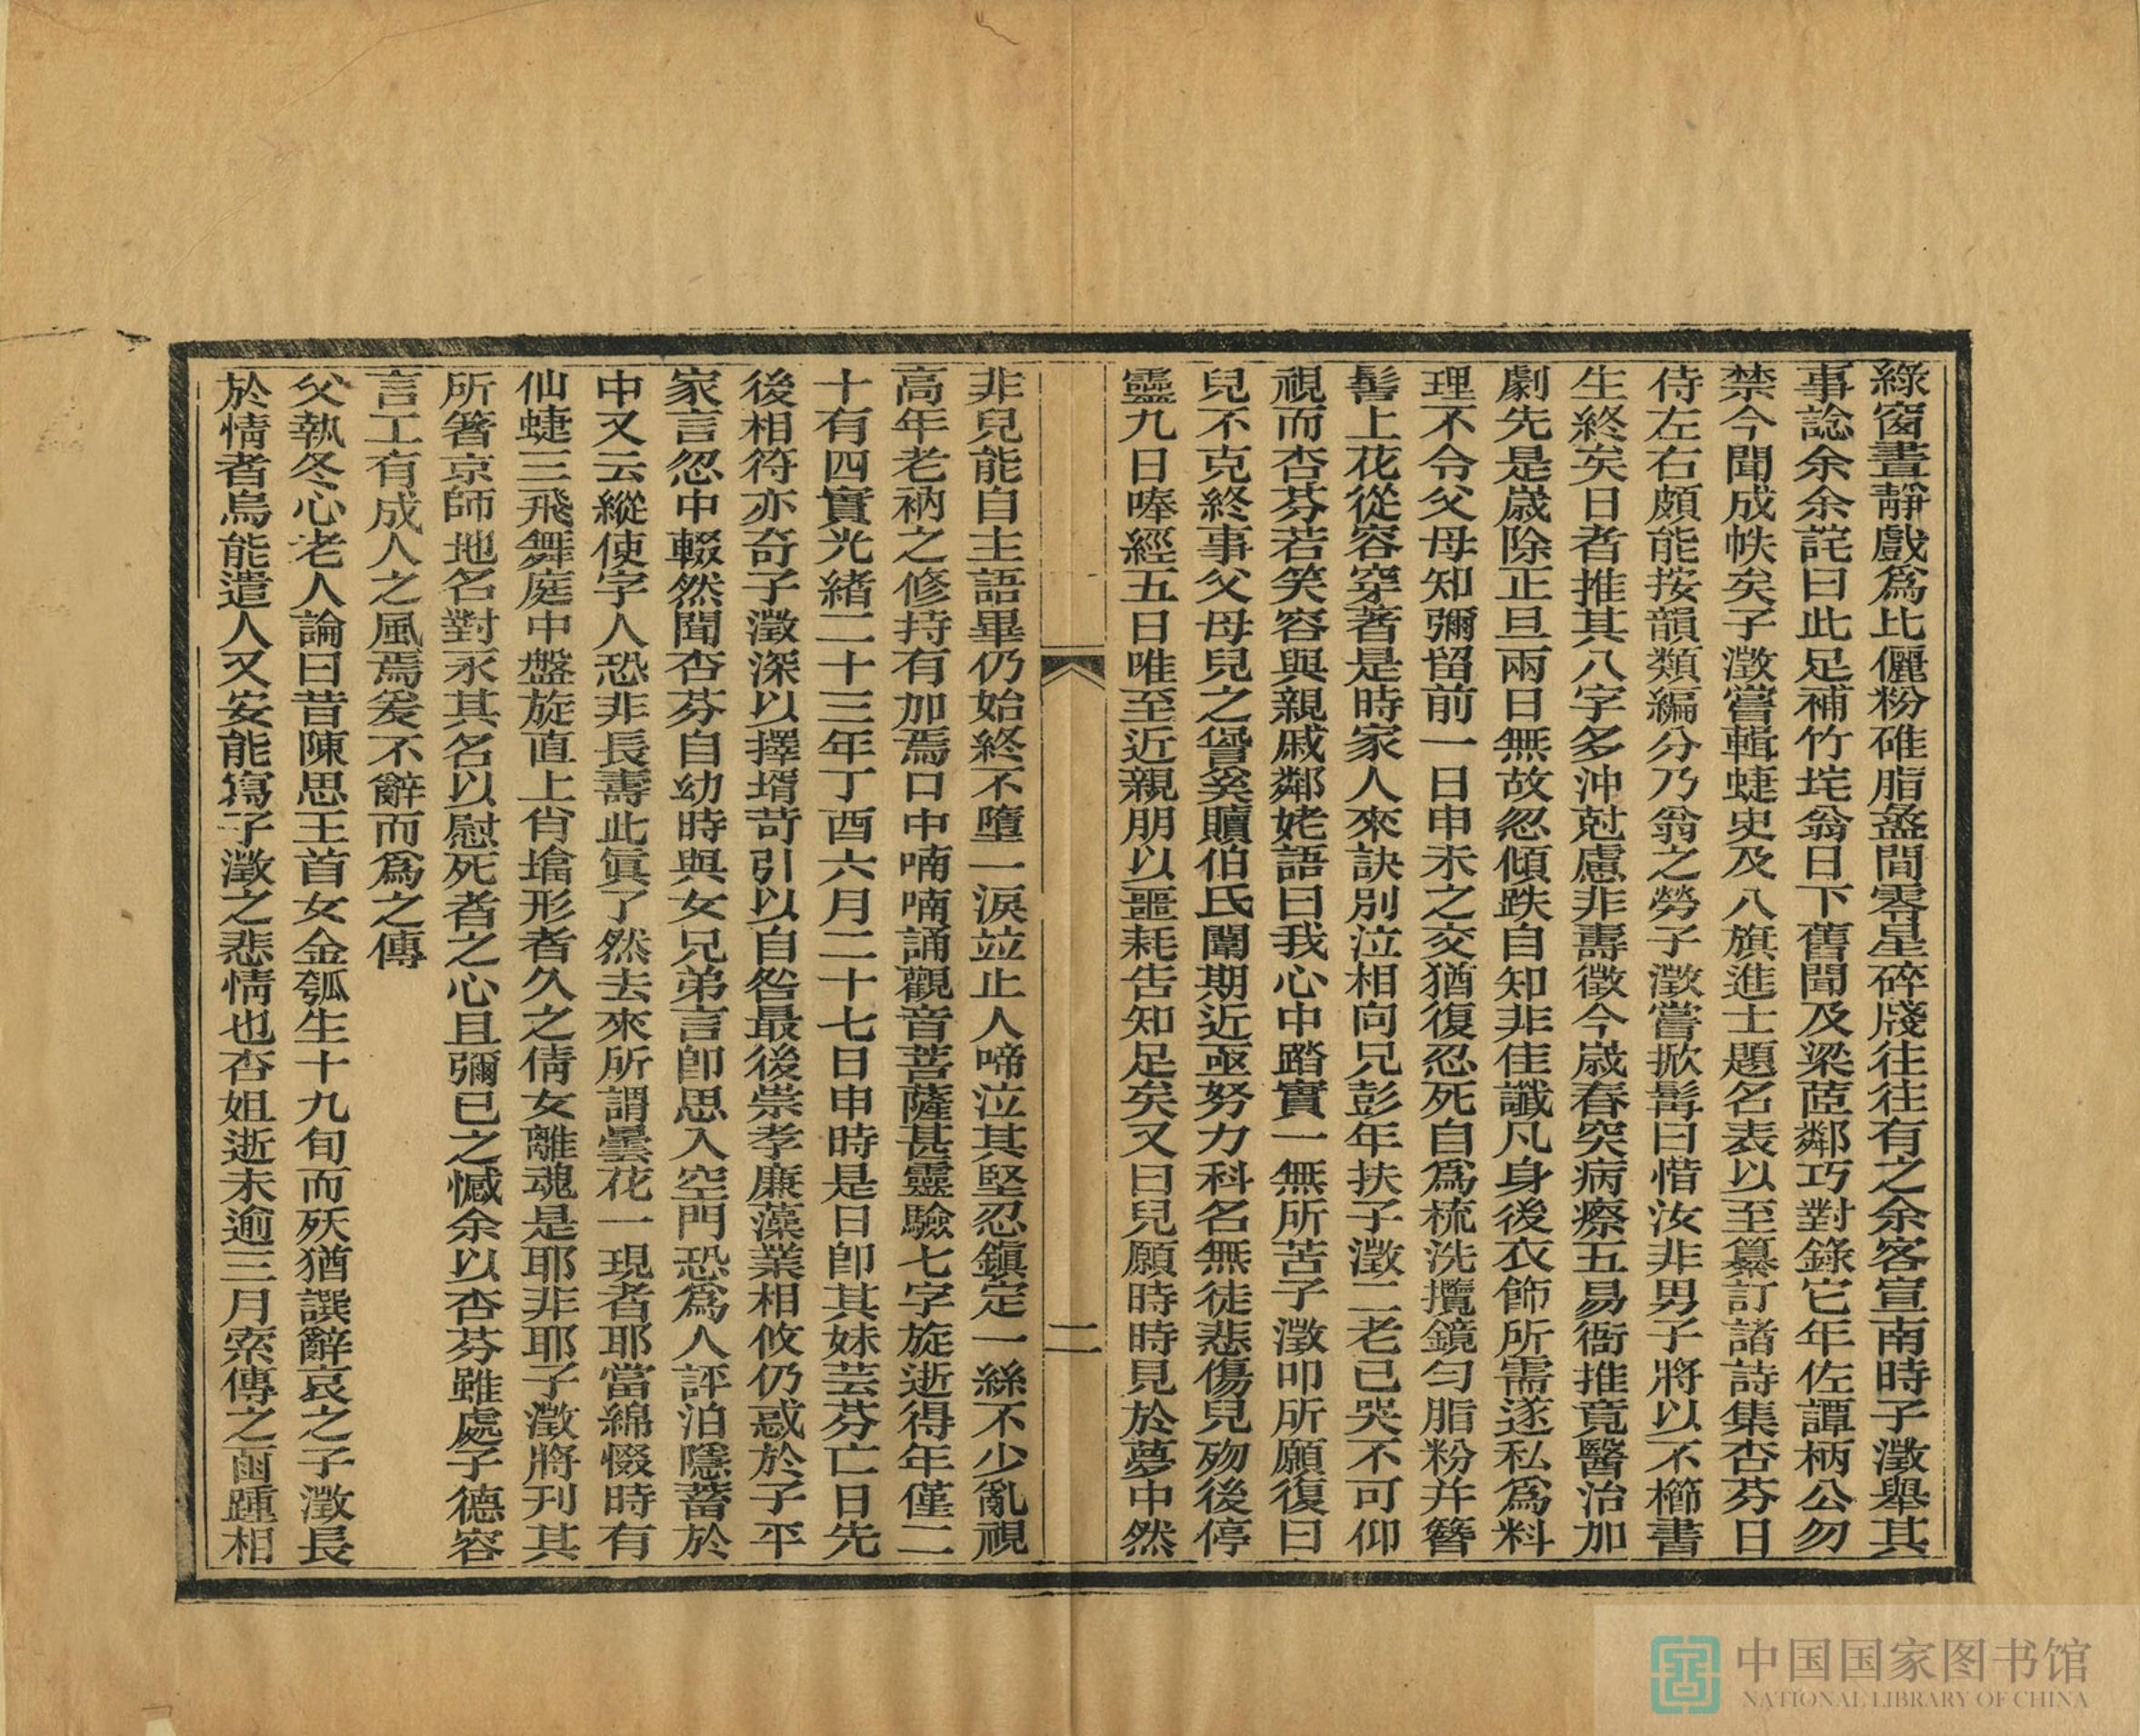 綠窗晝靜戲爲比儷粉碓脂盝間零星碎牋往往有之余客宣南時子瀓舉其
事諗余余詫曰此足補竹垞翁日下舊聞及梁茝鄰巧對錄它年佐譚柄公勿
禁今聞成帙矣子瀓嘗輯蜨史及八旗進士題名表以至纂訂諸詩集杏芬日
侍左右頗能按韻類編分乃翁之勞子瀓嘗掀髯曰惜汝非男子將以不櫛書
生終矣日者推其八字多沖尅慮非壽徵今歲春突病瘵五易衙推竟醫治加
劇先是歲除正旦兩日無故忽傾跌自知非佳讖凡身後衣飾所需遂私爲料
理不令父母知彌留前一日申未之交猶復忍死自爲梳洗攬鏡勻脂粉并簪
髻上花從容穿著是時家人來訣別泣相向兄彭年扶子瀓二老已哭不可仰
視而杏芬若笑容與親戚鄰姥語曰我心中踏實一無所苦子瀓叩所願復曰
兒不克終事父母兒之眚奚贖伯氏闈期近亟努力科名無徒悲傷兒歿後停
靈九日唪經五日唯至近親朋以噩耗告知足矣又曰兒願時時見於夢中然
二
非兒能自主語畢仍始終不墮一淚竝止人啼泣其堅忍鎮定一絲不少亂視
高年老衲之修持有加焉口中喃喃誦觀音菩薩甚靈驗七字旋逝得年僅二
十有四實光緒二十三年丁酉六月二十七日申時是日卽其妹芸芬亡日先
後相符亦奇子瀓深以擇壻苛引以自咎最後崇孝廉藻業相攸仍惑於子平
家言忽中輟然聞杏芬自幼時與女兄弟言卽思入空門恐爲人評泊隱蓄於
中又云縱使字人恐非長壽此眞了然去來所謂曇花一現者耶當綿惙時有
仙蜨三飛舞庭中盤旋直上肖墖形者久之倩女離魂是耶非耶子瀓將刊其
所箸京師地名對永其名以慰死者之心且彌已之憾余以杏芬雖處子德容
言工有成人之風焉爰不辭而爲之傳
父執冬心老人論曰昔陳思王首女金瓠生十九旬而殀猶譔辭哀之子瀓長
於情者烏能遣人又安能寫子瀓之悲情也杏姐逝未逾三月索傳之函踵相
中国国家图书馆
NATIONAL LIBRARY OF CHINA